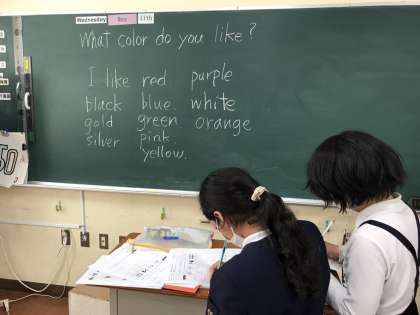 Wednesday 11th
What color do you like?
I like red purple
black blue white
gold green orange
silver pink
yellow.
50